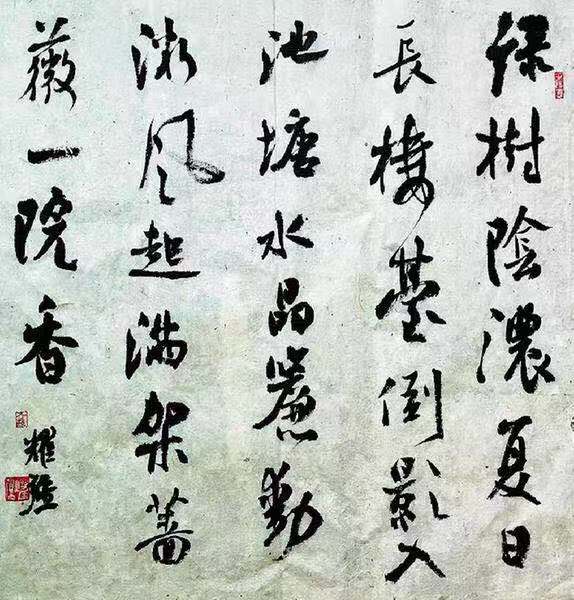 綠樹陰濃夏日
長樓臺倒影入
池塘水晶簾動
微風起滿架薔
薇一院香
耀